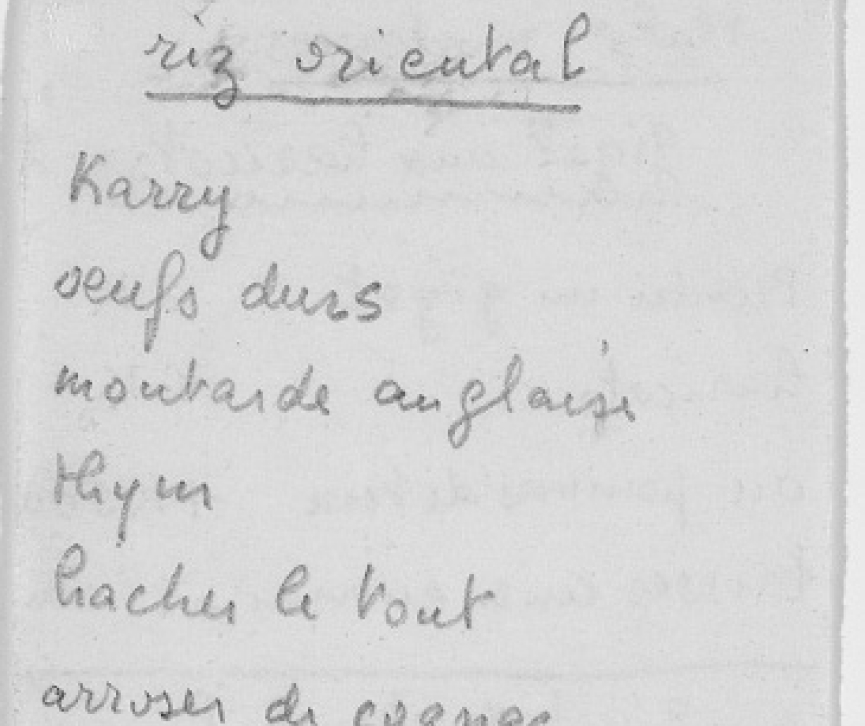 riz oriental
Karry
oeufs durs
moutarde anglaise
thym
hacher le tout
arroser de cognac